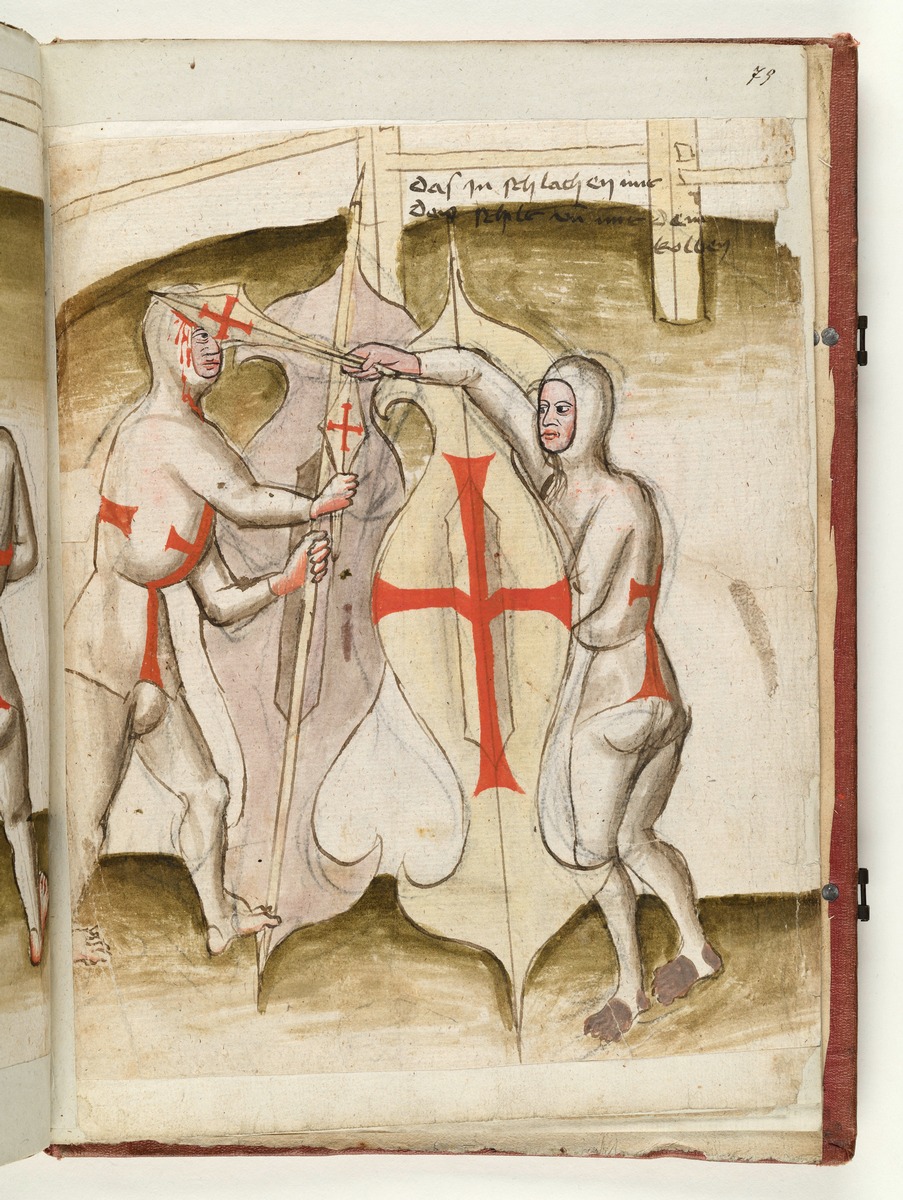 79
das in schlachen mit
dem schilt vn mit dem
kolben